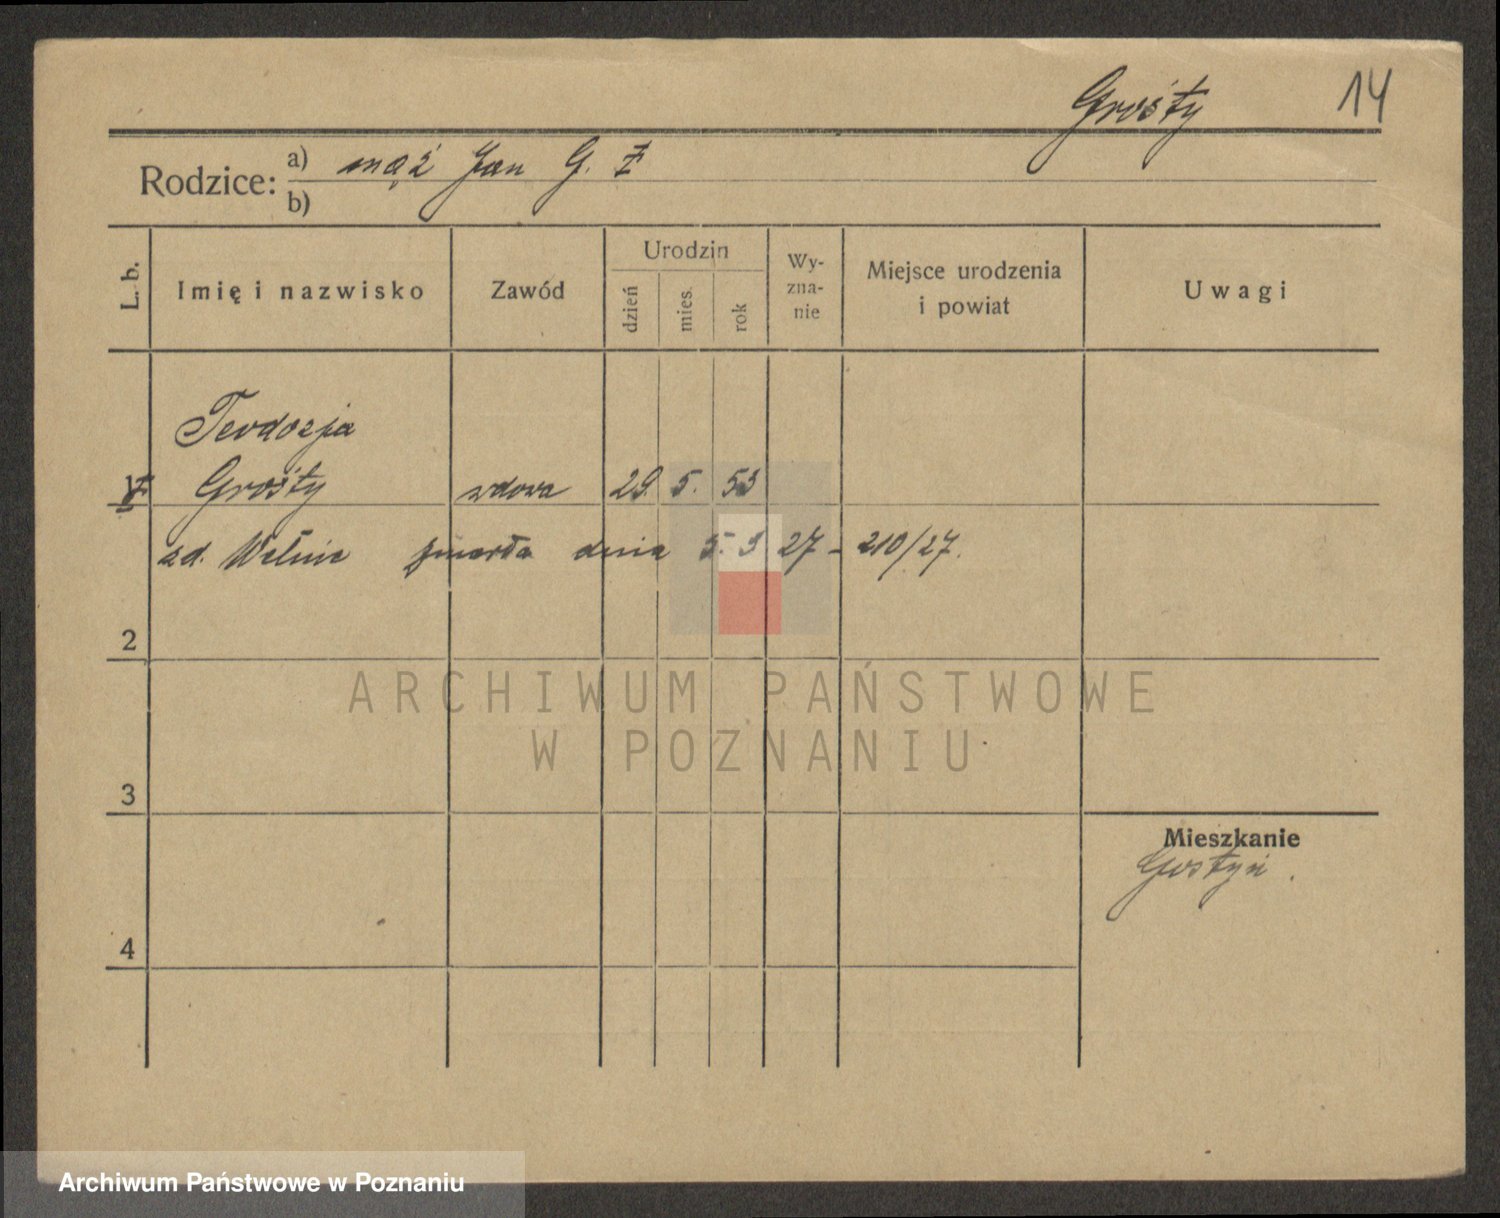 Grośty 14
Rodzice: a) mąż Jan G. ‡
b)
L. b. Imię i nazwisko Zawód Urodzin dzień mies. rok Wy-zna-nie Miejsce urodzenia i powiat Uwagi
Teodozja
1 Grośty wdowa 29. 5. 53
zd. Wełnic zmarła dnia 5. 3 27 - 210/27.
2
ARCHIWUM PAŃSTWOWE
W POZNANIU
3
Mieszkanie
Gostyń.
4
Archiwum Państwowe w Poznaniu